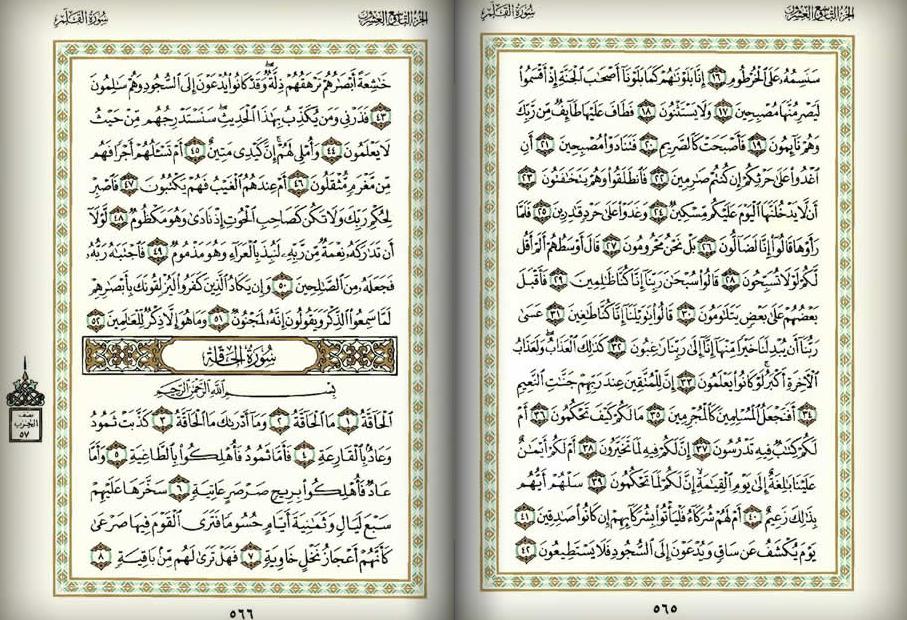 الجزء التاسع والعشرون
سورة القلم
سَنَسِمُهُۥ عَلَى ٱلْخُرْطُومِ ١٦ إِنَّا بَلَوْنَٰهُمْ كَمَا بَلَوْنَآ أَصْحَٰبَ ٱلْجَنَّةِ إِذْ أَقْسَمُوا۟
لَيَصْرِمُنَّهَا مُصْبِحِينَ ١٧ وَلَا يَسْتَثْنُونَ ١٨ فَطَافَ عَلَيْهَا طَآئِفٌ مِّن رَّبِّكَ
وَهُمْ نَآئِمُونَ ١٩ فَأَصْبَحَتْ كَٱلصَّرِيمِ ٢٠ فَتَنَادَوْا۟ مُصْبِحِينَ ٢١ أَنِ
ٱغْدُوا۟ عَلَىٰ حَرْثِكُمْ إِن كُنتُمْ صَٰرِمِينَ ٢٢ فَٱنطَلَقُوا۟ وَهُمْ يَتَخَٰفَتُونَ ٢٣
أَن لَّا يَدْخُلَنَّهَا ٱلْيَوْمَ عَلَيْكُم مِّسْكِينٌ ٢٤ وَغَدَوْا۟ عَلَىٰ حَرْدٍ قَٰدِرِينَ ٢٥ فَلَمَّا
رَأَوْهَا قَالُوٓا۟ إِنَّا لَضَآلُّونَ ٢٦ بَلْ نَحْنُ مَحْرُومُونَ ٢٧ قَالَ أَوْسَطُهُمْ أَلَمْ أَقُل
لَّكُمْ لَوْلَا تُسَبِّحُونَ ٢٨ قَالُوا۟ سُبْحَٰنَ رَبِّنَآ إِنَّا كُنَّا ظَٰلِمِينَ ٢٩ فَأَقْبَلَ
بَعْضُهُمْ عَلَىٰ بَعْضٍ يَتَلَٰوَمُونَ ٣٠ قَالُوا۟ يَٰوَيْلَنَآ إِنَّا كُنَّا طَٰغِينَ ٣١ عَسَىٰ
رَبُّنَآ أَن يُبْدِلَنَا خَيْرًا مِّنْهَآ إِنَّآ إِلَىٰ رَبِّنَا رَٰغِبُونَ ٣٢ كَذَٰلِكَ ٱلْعَذَابُ وَلَعَذَابُ
ٱلْءَاخِرَةِ أَكْبَرُ لَوْ كَانُوا۟ يَعْلَمُونَ ٣٣ إِنَّ لِلْمُتَّقِينَ عِندَ رَبِّهِمْ جَنَّٰتِ ٱلنَّعِيمِ
٣٤ أَفَنَجْعَلُ ٱلْمُسْلِمِينَ كَٱلْمُجْرِمِينَ ٣٥ مَا لَكُمْ كَيْفَ تَحْكُمُونَ ٣٦ أَمْ
لَكُمْ كِتَٰبٌ فِيهِ تَدْرُسُونَ ٣٧ إِنَّ لَكُمْ فِيهِ لَمَا تَخَيَّرُونَ ٣٨ أَمْ لَكُمْ أَيْمَٰنٌ
عَلَيْنَا بَٰلِغَةٌ إِلَىٰ يَوْمِ ٱلْقِيَٰمَةِ إِنَّ لَكُمْ لَمَا تَحْكُمُونَ ٣٩ سَلْهُمْ أَيُّهُم
بِذَٰلِكَ زَعِيمٌ ٤٠ أَمْ لَهُمْ شُرَكَآءُ فَلْيَأْتُوا۟ بِشُرَكَآئِهِمْ إِن كَانُوا۟ صَٰدِقِينَ ٤١
يَوْمَ يُكْشَفُ عَن سَاقٍ وَيُدْعَوْنَ إِلَى ٱلسُّجُودِ فَلَا يَسْتَطِيعُونَ ٤٢
٥٦٥
الجزء التاسع والعشرون
سورة القلم
خَٰشِعَةً أَبْصَٰرُهُمْ تَرْهَقُهُمْ ذِلَّةٌ وَقَدْ كَانُوا۟ يُدْعَوْنَ إِلَى ٱلسُّجُودِ وَهُمْ سَٰلِمُونَ
٤٣ فَذَرْنِى وَمَن يُكَذِّبُ بِهَٰذَا ٱلْحَدِيثِ سَنَسْتَدْرِجُهُم مِّنْ حَيْثُ
لَا يَعْلَمُونَ ٤٤ وَأُمْلِى لَهُمْ إِنَّ كَيْدِى مَتِينٌ ٤٥ أَمْ تَسْـَٔلُهُمْ أَجْرًا فَهُم
مِّن مَّغْرَمٍ مُّثْقَلُونَ ٤٦ أَمْ عِندَهُمُ ٱلْغَيْبُ فَهُمْ يَكْتُبُونَ ٤٧ فَٱصْبِرْ
لِحُكْمِ رَبِّكَ وَلَا تَكُن كَصَاحِبِ ٱلْحُوتِ إِذْ نَادَىٰ وَهُوَ مَكْظُومٌ ٤٨ لَّوْلَآ
أَن تَدَٰرَكَهُۥ نِعْمَةٌ مِّن رَّبِّهِۦ لَنُبِذَ بِٱلْعَرَآءِ وَهُوَ مَذْمُومٌ ٤٩ فَٱجْتَبَٰهُ رَبُّهُۥ
فَجَعَلَهُۥ مِنَ ٱلصَّٰلِحِينَ ٥٠ وَإِن يَكَادُ ٱلَّذِينَ كَفَرُوا۟ لَيُزْلِقُونَكَ بِأَبْصَٰرِهِمْ
لَمَّا سَمِعُوا۟ ٱلذِّكْرَ وَيَقُولُونَ إِنَّهُۥ لَمَجْنُونٌ ٥١ وَمَا هُوَ إِلَّا ذِكْرٌ لِّلْعَٰلَمِينَ ٥٢
سورة الحاقة
بِسْمِ ٱللَّهِ ٱلرَّحْمَٰنِ ٱلرَّحِيمِ
ٱلْحَآقَّةُ ١ مَا ٱلْحَآقَّةُ ٢ وَمَآ أَدْرَىٰكَ مَا ٱلْحَآقَّةُ ٣ كَذَّبَتْ ثَمُودُ
وَعَادٌۢ بِٱلْقَارِعَةِ ٤ فَأَمَّا ثَمُودُ فَأُهْلِكُوا۟ بِٱلطَّاغِيَةِ ٥ وَأَمَّا
عَادٌ فَأُهْلِكُوا۟ بِرِيحٍ صَرْصَرٍ عَاتِيَةٍ ٦ سَخَّرَهَا عَلَيْهِمْ
سَبْعَ لَيَالٍ وَثَمَٰنِيَةَ أَيَّامٍ حُسُومًا فَتَرَى ٱلْقَوْمَ فِيهَا صَرْعَىٰ
كَأَنَّهُمْ أَعْجَازُ نَخْلٍ خَاوِيَةٍ ٧ فَهَلْ تَرَىٰ لَهُم مِّنۢ بَاقِيَةٍ ٨
نصف
الحزب
٥٧
٥٦٦